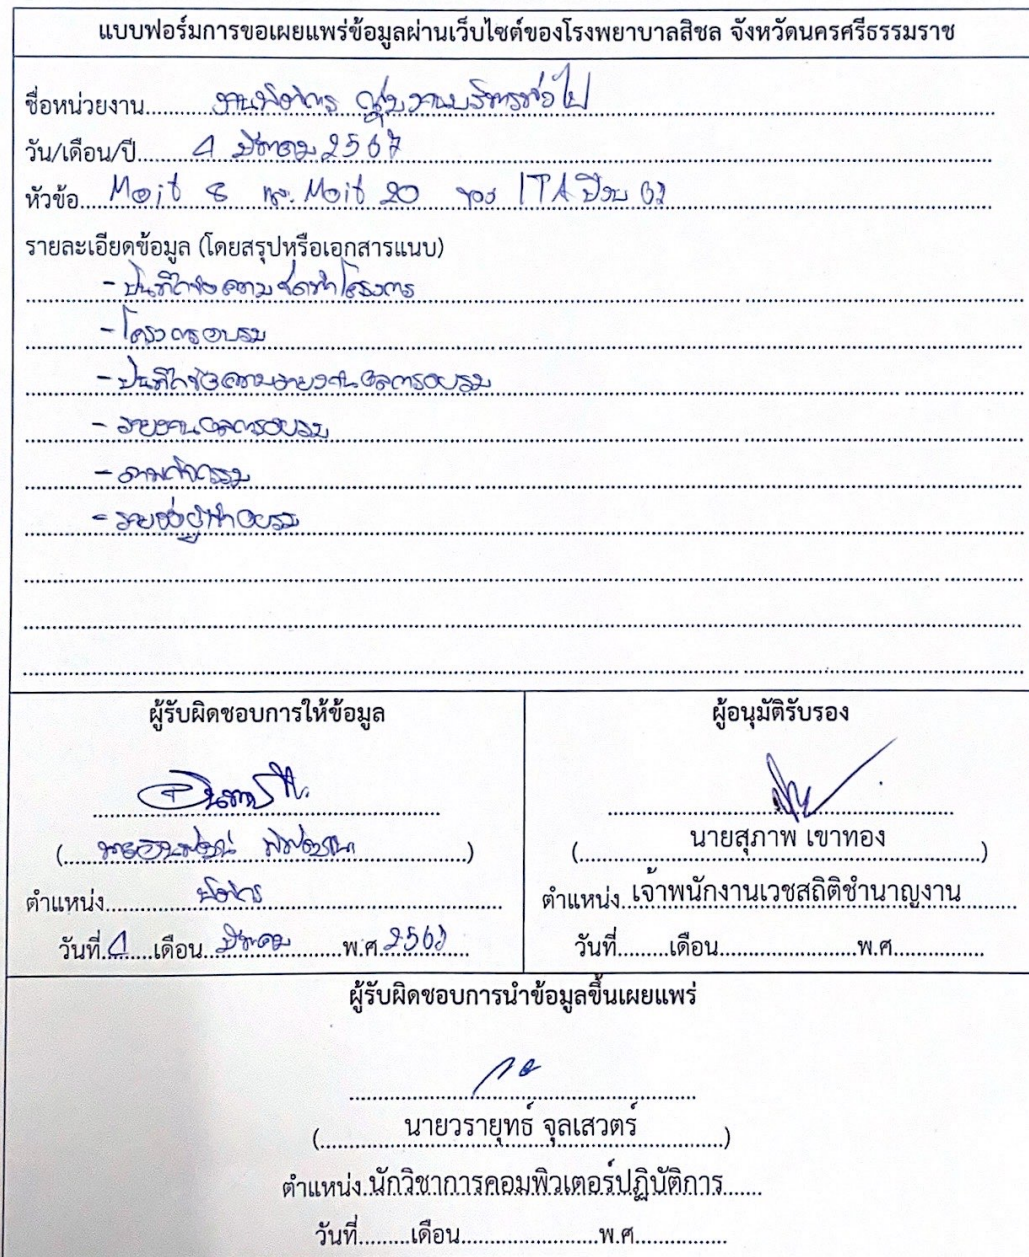 แบบฟอร์มการขอเผยแพร่ข้อมูลผ่านเว็บไซต์ของโรงพยาบาลสิชล จังหวัดนครศรีธรรมราช
ชื่อหน่วยงาน........งานนิติกร กลุ่มงานบริหารทั่วไป
วัน/เดือน/ปี........4 มีนาคม 2567
หัวข้อ....Moit 8 และ Moit 20 ของ ITA ปีงบ 67
รายละเอียดข้อมูล (โดยสรุปหรือเอกสารแนบ)
- บันทึกข้อความ จัดทำโครงการ
- โครงการอบรม
- บันทึกข้อความรายงานผลการอบรม
- รายงานผลการอบรม
- ภาพกิจกรรม
- รายชื่อผู้เข้าอบรม
ผู้รับผิดชอบการให้ข้อมูล
ตำแหน่ง........นิติกร
วันที่ 4 เดือน มีนาคม พ.ศ 2567
ผู้อนุมัติรับรอง
(นายสุภาพ เขาทอง)
ตำแหน่ง เจ้าพนักงานเวชสถิติชำนาญงาน
วันที่.........เดือน.........................พ.ศ.................
ผู้รับผิดชอบการนำข้อมูลขึ้นเผยแพร่
(นายวรายุทธ์ จุลเสวตร์)
ตำแหน่ง นักวิชาการคอมพิวเตอร์ปฏิบัติการ
วันที่.........เดือน.........................พ.ศ.................